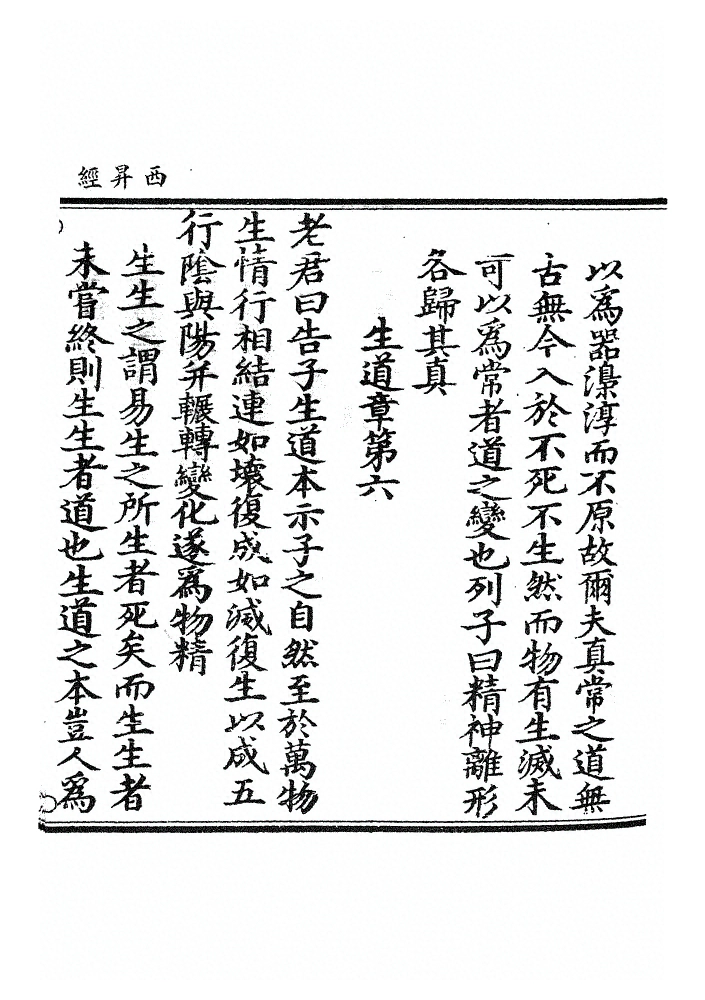 西昇經
以爲器澆淳而不原故爾夫真常之道無
古無今入於不死不生然而物有生滅未
可以爲常者道之變也列子曰精神離形
各歸其真
生道章第六
老君曰告子生道本示子之自然至於萬物
生情行相結連如壞復成如滅復生以成五
行陰與陽并輾轉變化遂爲物精
生生之謂易生之所生者死矣而生生者
未嘗終則生生者道也生道之本豈人爲